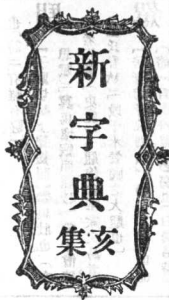 新字典
亥集